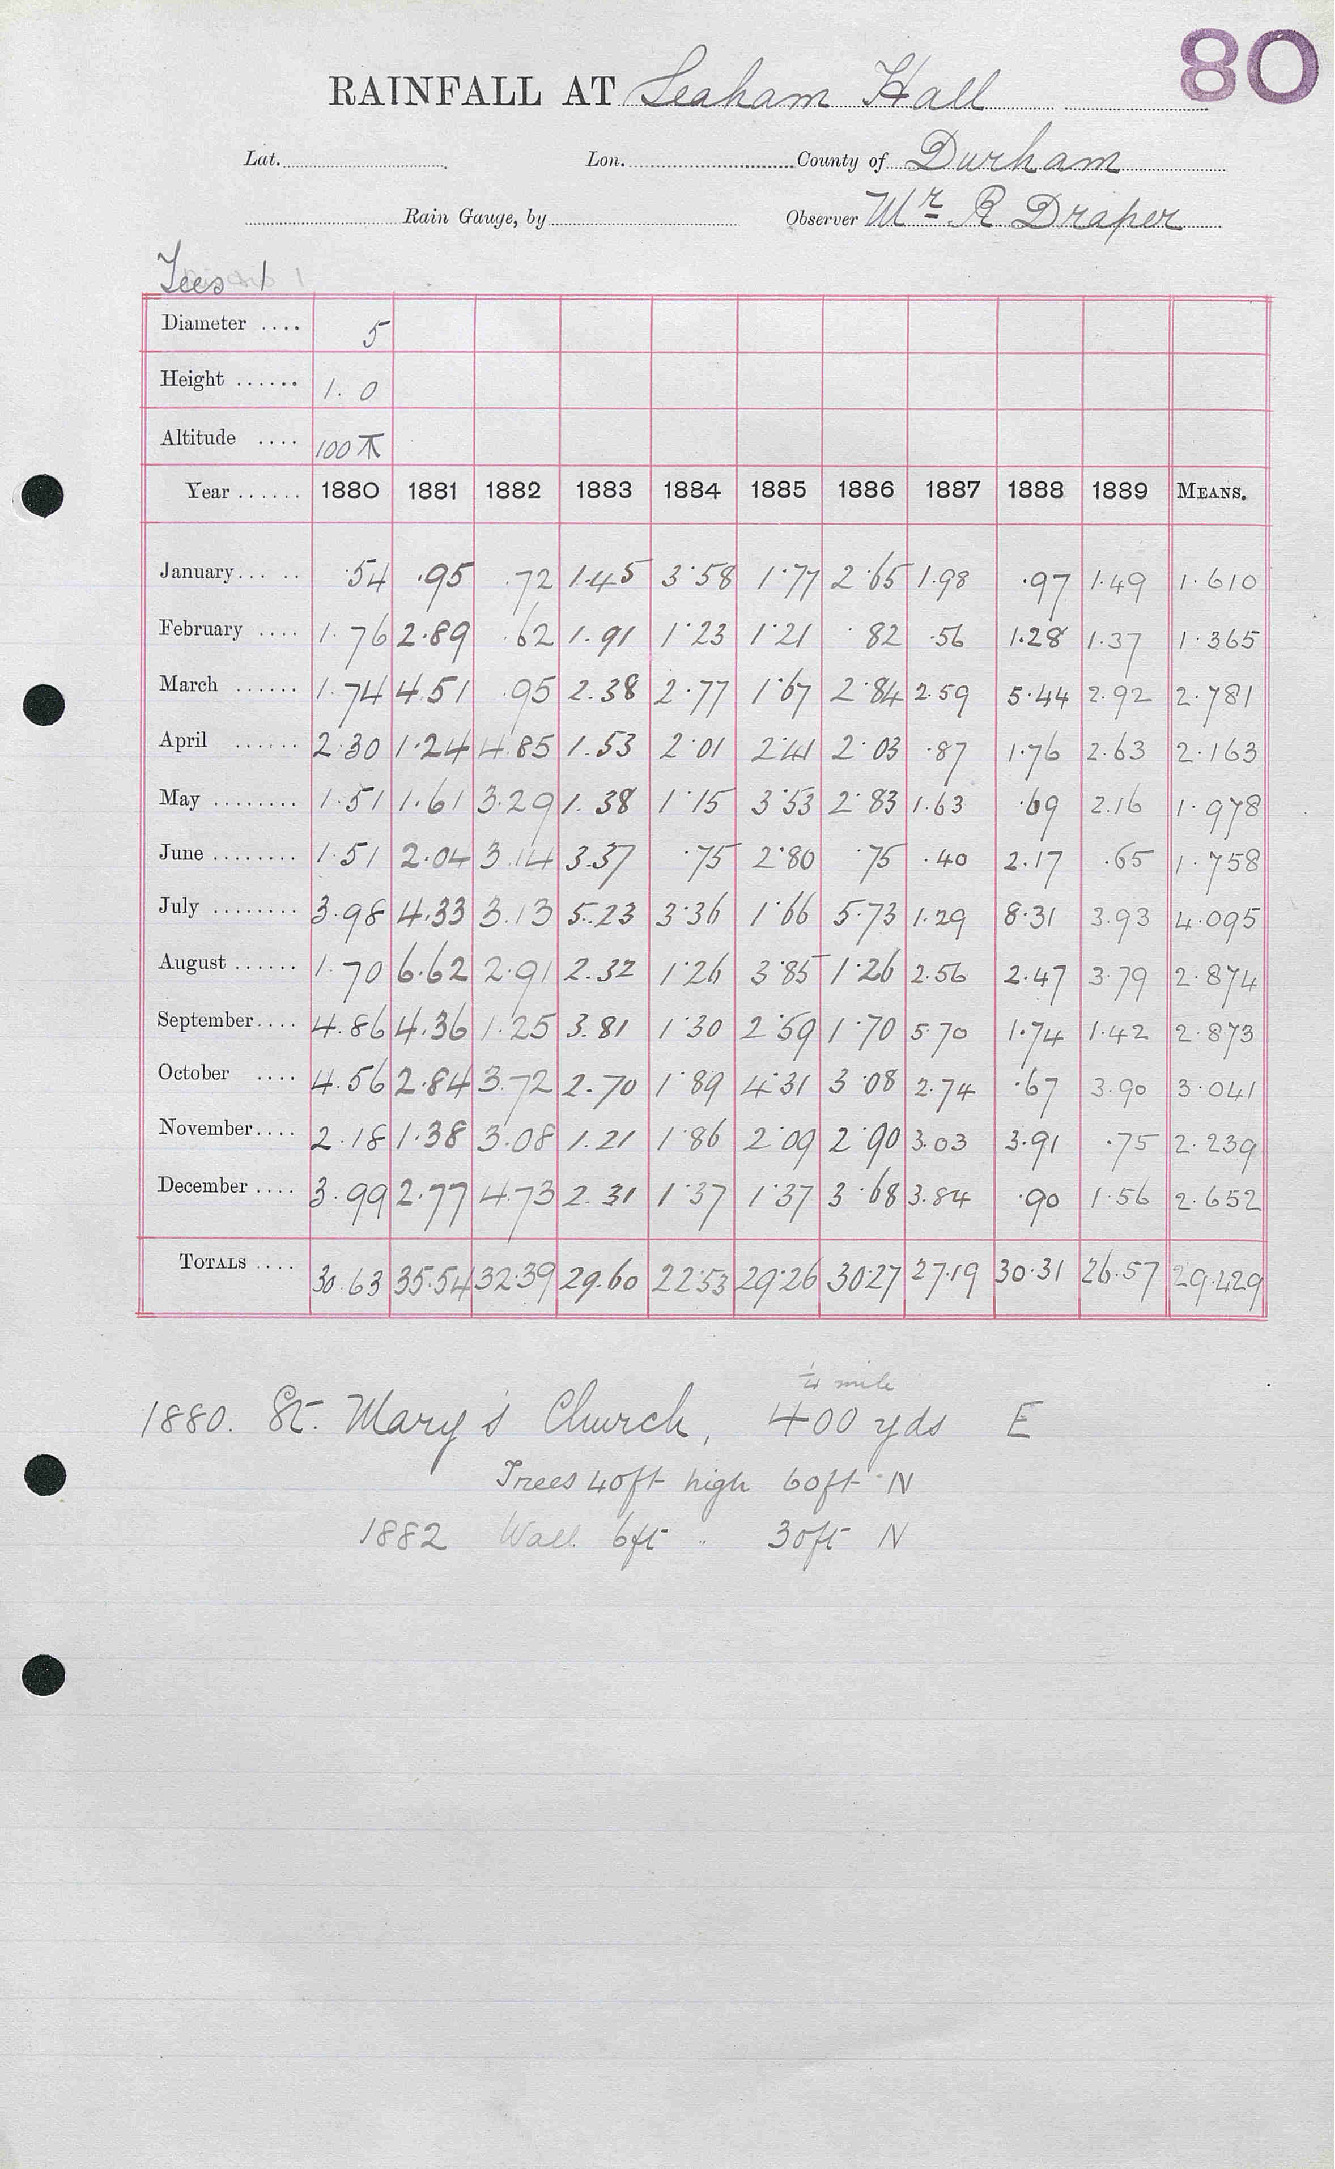 80
RAINFALL AT Seaham Hall
Lat. Lon. County of Durham
Rain Gauge, by Observer Mr R Draper
Tees 1
Diameter .... 5
Height ...... 1. 0
Altitude .... 100
Year ...... 1880 1881 1882 1883 1884 1885 1886 1887 1888 1889 MEANS.
January... .. .54 .95 .72 1.45 3.58 1.77 2.65 1.98 .97 1.49 1.610
February .... 1.76 2.89 .62 1.91 1.23 1.21 .82 .56 1.28 1.37 1.365
March ...... 1.74 4.51 .95 2.38 2.77 1.67 2.84 2.59 5.44 2.92 2.781
April ...... 2.30 1.24 4.85 1.53 2.01 2.41 2.03 .87 1.76 2.63 2.163
May ........ 1.51 1.61 3.29 1.38 1.15 3.53 2.83 1.63 .69 2.16 1.978
June ........ 1.51 2.04 3.14 3.37 .75 2.80 .75 .40 2.17 .65 1.758
July ........ 3.98 4.33 3.13 5.23 3.36 1.66 5.73 1.29 8.31 3.93 4.095
August ...... 1.70 6.62 2.91 2.32 1.26 3.85 1.26 2.56 2.47 3.79 2.874
September.... 4.86 4.36 1.25 3.81 1.30 2.59 1.70 5.70 1.74 1.42 2.873
October .... 4.56 2.84 3.72 2.70 1.89 4.31 3.08 2.74 .67 3.90 3.041
November.... 2.18 1.38 3.08 1.21 1.86 2.09 2.90 3.03 3.91 .75 2.239
December .... 3.99 2.77 4.73 2.31 1.37 1.37 3.68 3.84 .90 1.56 2.652
TOTALS .... 30.63 35.54 32.39 29.60 22.53 29.26 30.27 27.19 30.31 26.57 29.429
¼ mile
1880. St. Mary's Church, 400 yds E
Trees 40ft high 60ft N
1882 Wall 6ft " 30ft N